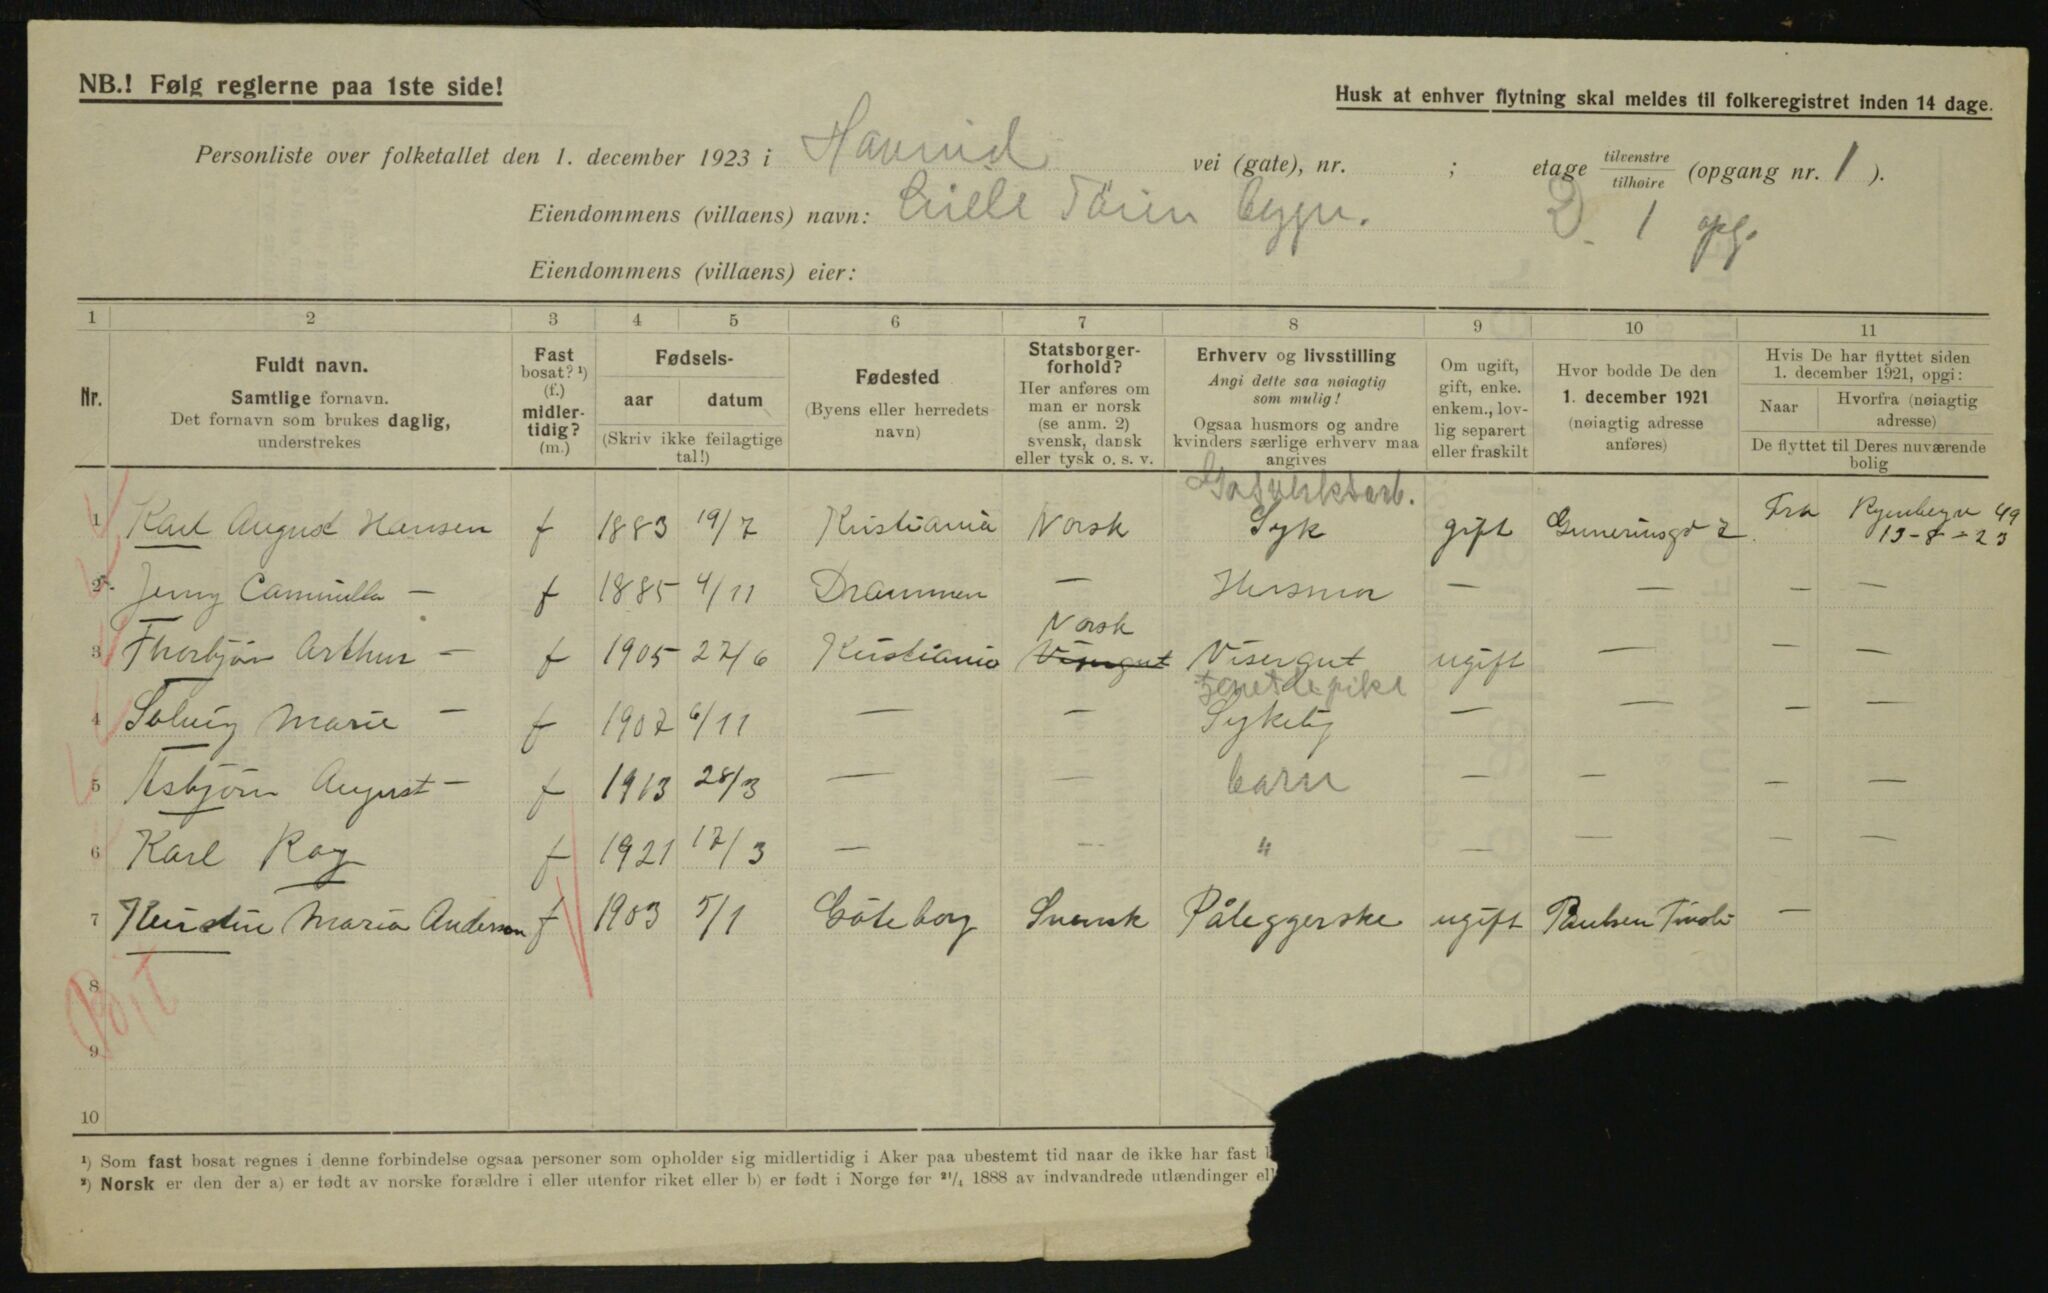 NB.! Følg reglerne paa 1ste side!
Husk at enhver flytning skal meldes til folkeregistret inden 14 dage.
Personliste over folketallet den 1. december 1923 i vei (gate), nr. ; etage tilvenstre tilhøire (opgang nr. 1 ).
Eiendommens (villaens) navn: Lille Tøien D. 1 opg.
Eiendommens (villaens) eier:
1 2 3 4 5 6 7 8 9 10 11
Nr.
Fuldt navn.
Samtlige fornavn.
Det fornavn som brukes daglig,
understrekes
Fast
bosat? ¹)
(f.)
midler-
tidig?
(m.)
Fødsels-
aar datum
(Skriv ikke feilagtige
tal!)
Fødested
(Byens eller herredets
navn)
Statsborger-
forhold?
Her anføres om
man er norsk
(se anm. 2)
svensk, dansk
eller tysk o. s. v.
Erhverv og livsstilling
Angi dette saa nøiagtig
som mulig!
Ogsaa husmors og andre
kvinders særlige erhverv maa
angives
Om ugift,
gift, enke.
enkem., lov-
lig separert
eller fraskilt
Hvor bodde De den
1. december 1921
(nøiagtig adresse
anføres)
Hvis De har flyttet siden
1. december 1921, opgi:
Naar
Hvorfra (nøiagtig
adresse)
De flyttet til Deres nuværende
bolig
Gasverksarb.
1 Karl August Hansen f 1883 19/7 Kristiania Norsk Syk gift Fra 49
13-8-23
2 Jenny Cammilla — f 1885 4/11 Drammen — Husmor — — — —
Norsk
3 Thorbjørn Arthur — f 1905 27/6 Kristiania Visergut Visergut ugift — — —
4 Solveig Marie — f 1907 6/11 — — Sykelig — — — —
5 Asbjørn August — f 1913 28/3 — — barn — — — —
6 Karl Roy f 1921 17/3 — — " — — — —
7 Kerstin Maria Anderson f 1903 5/1 Göteborg Svensk Påleggerske ugift Paulsen Tivoli —
8
9
10
¹) Som fast bosat regnes i denne forbindelse ogsaa personer som opholder sig midlertidig i Aker paa ubestemt tid naar de ikke har fast
²) Norsk er den der a) er født av norske forældre i eller utenfor riket eller b) er født i Norge før ²¹/₄ 1888 av indvandrede utlændinger